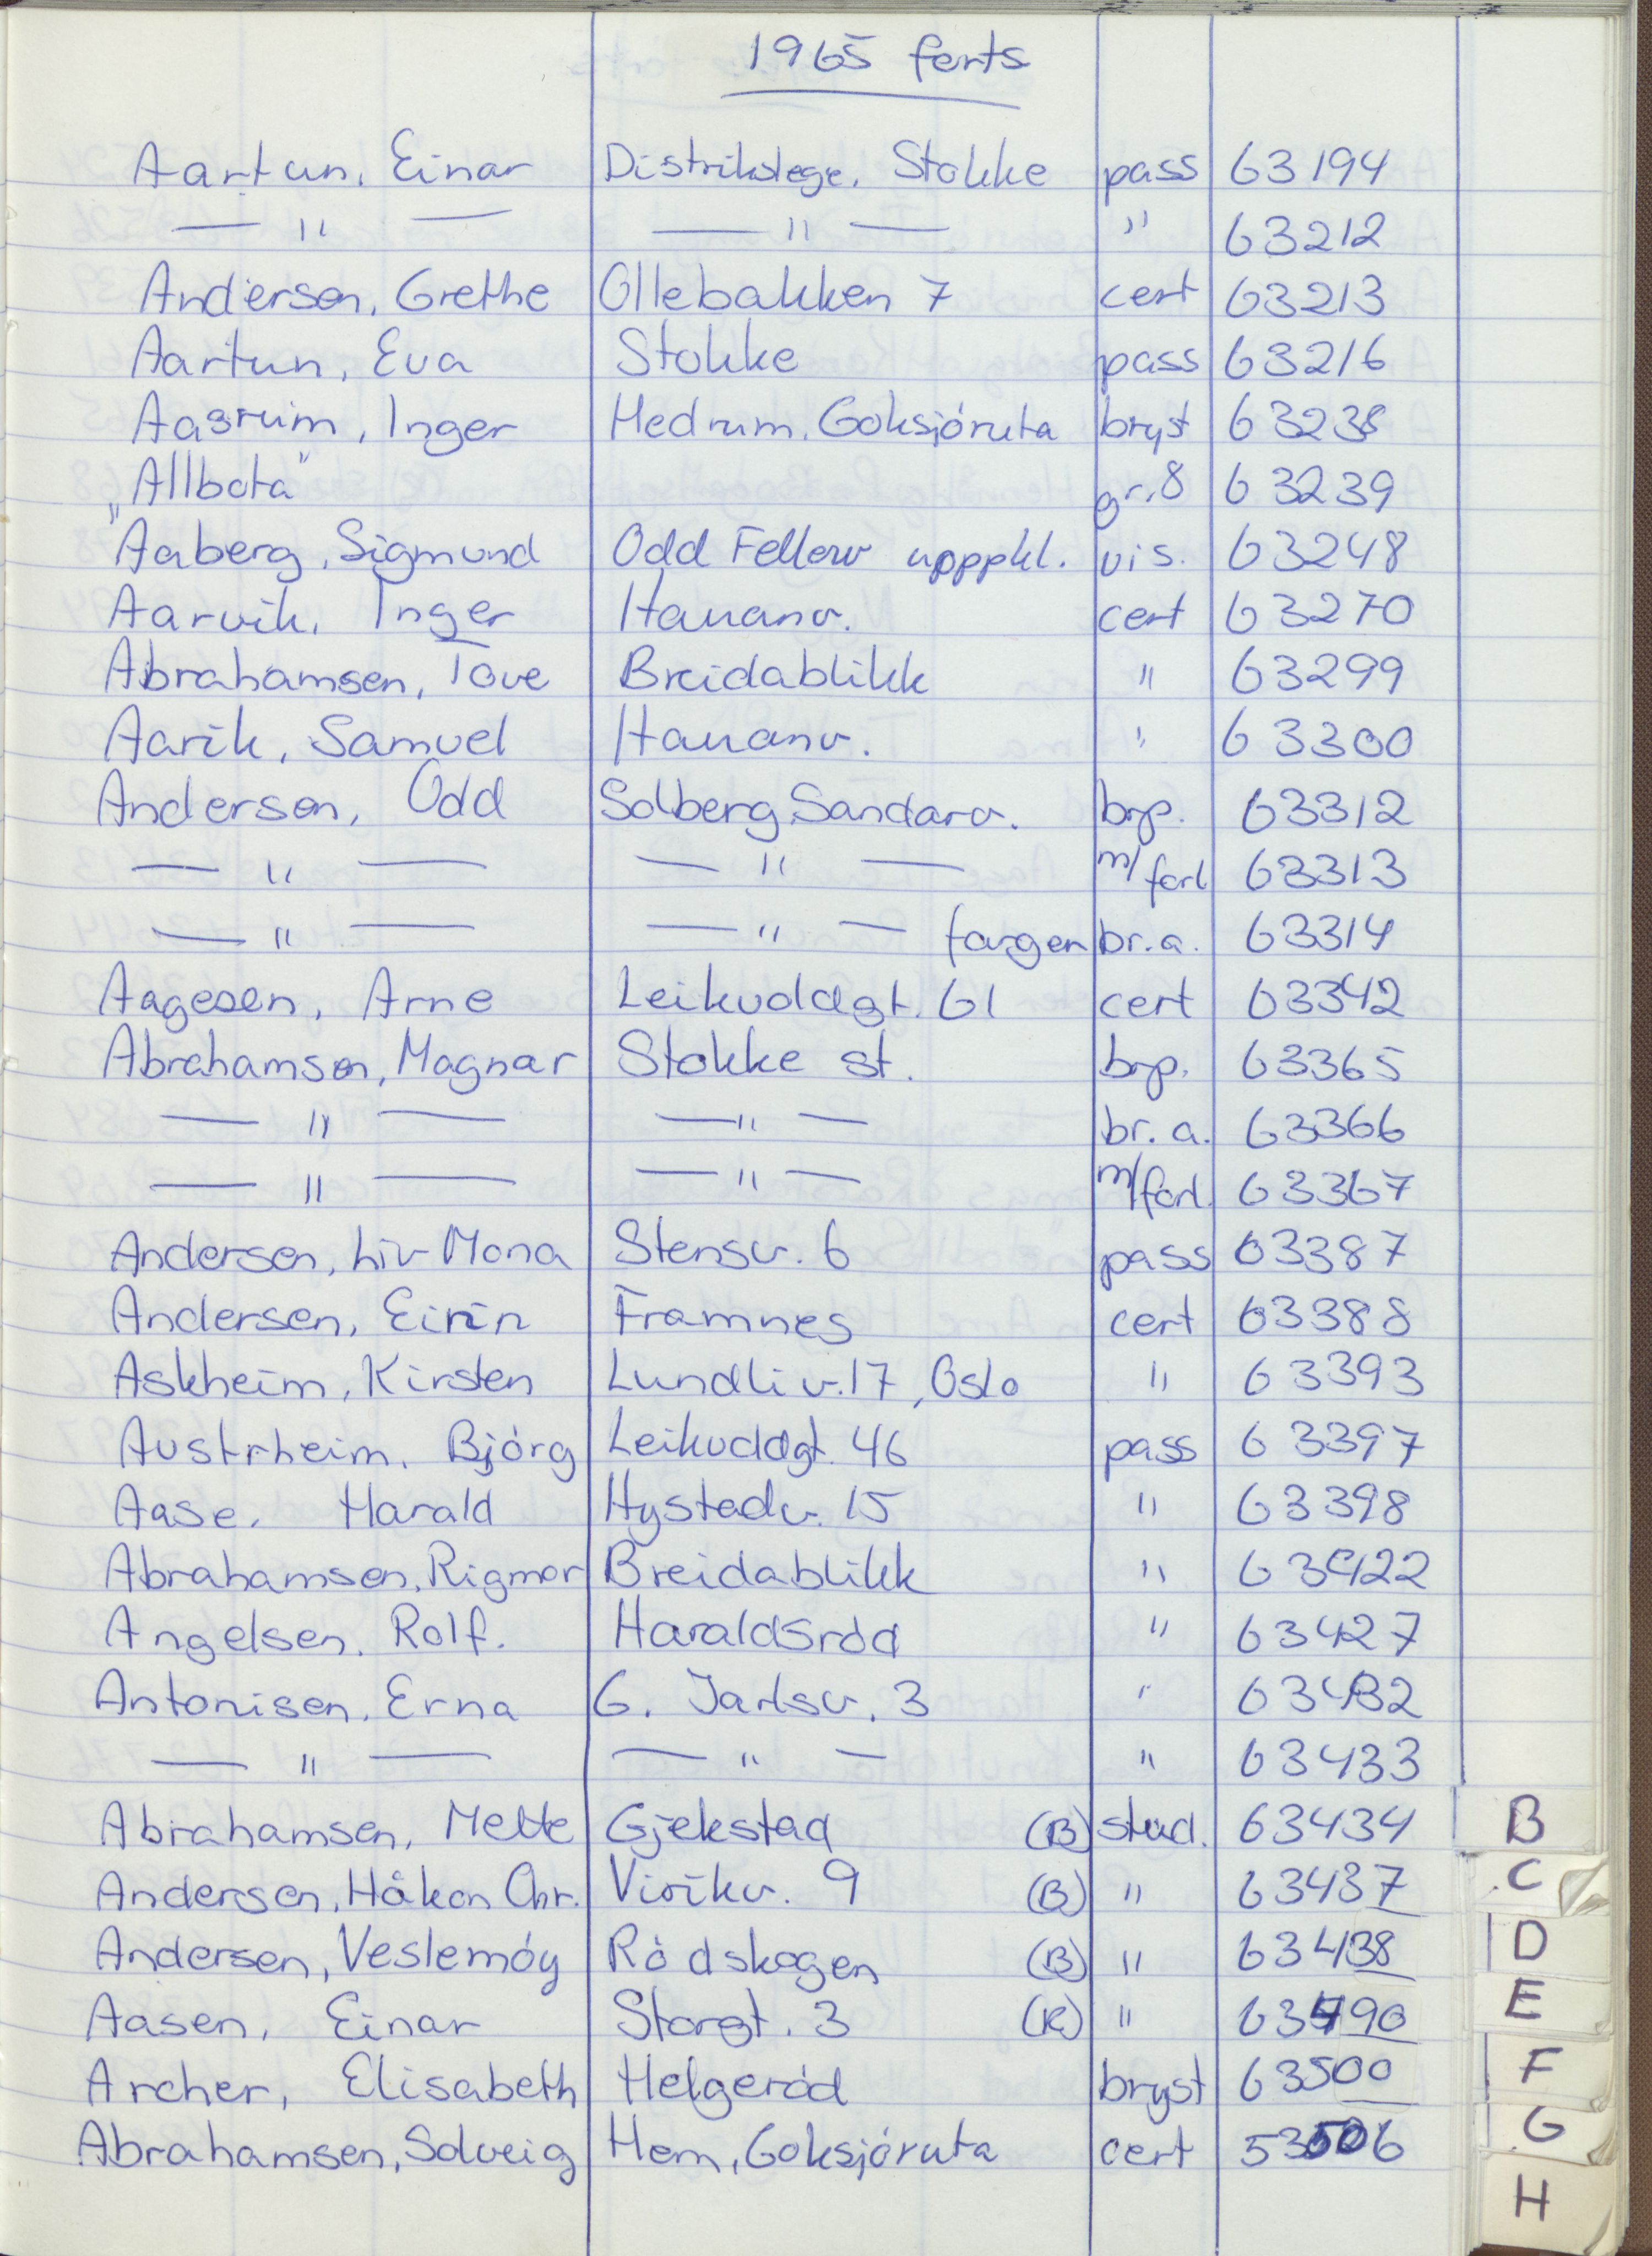 1965 forts
Aartun, Einar Distrikslege, Stokke pass 63194
— " — — " — " 63212
Andersen, Grethe Ollebakken 7 cert 63213
Aartun, Eva Stokke pass 63216
Aasrum, Inger Hedrum, Goksjóruta bryst 63238
"Allbota" gr. 8 63239
Aaberg, Sigmund Odd Fellow upppkl. vis. 63248
Aarvik, Inger Hauanv. cert 63270
Abrahamsen, Tove Breidablikk " 63299
Aarik, Samuel Hauanv. " 63300
Andersen, Odd Solberg, Sandarv. brp. 63312
— " — — " — m/forl 63313
— " — — " — fargen br.a. 63314
Aagesen, Arne Leikvollgt. 61 cert 63342
Abrahamsen, Magnar Stokke st. brp. 63365
— " — — " — br. a. 63366
— " — — " — m/forl. 63367
Andersen, Liv Mona Stensv. 6 pass 63387
Andersen, Eirin Framnes cert 63388
Askheim, Kirsten Lundliv. 17, Oslo " 63393
Austrheim, Bjórg Leikvollgt. 46 pass 63397
Aase, Harald Hystadv. 15 " 63398
Abrahamsen, Rigmor Breidablikk " 63422
Angelsen, Rolf. Haraldsród " 63427
Antonisen, Erna G. Jarlsv. 3 " 63432
— " — — " — " 63433
Abrahamsen, Mette Gjekstad (B) stud. 63434 B
Andersen, Håkon Chr. Virikv. 9 (B) " 63437 C
Andersen, Veslemóy Ródskogen (B) " 63438 D
Aasen, Einar Storgt. 3 (K) " 63490 E
Archer, Elisabeth Helgeród bryst 63500 F
Abrahamsen, Solveig Hem, Goksjóruta cert 53506 G
H